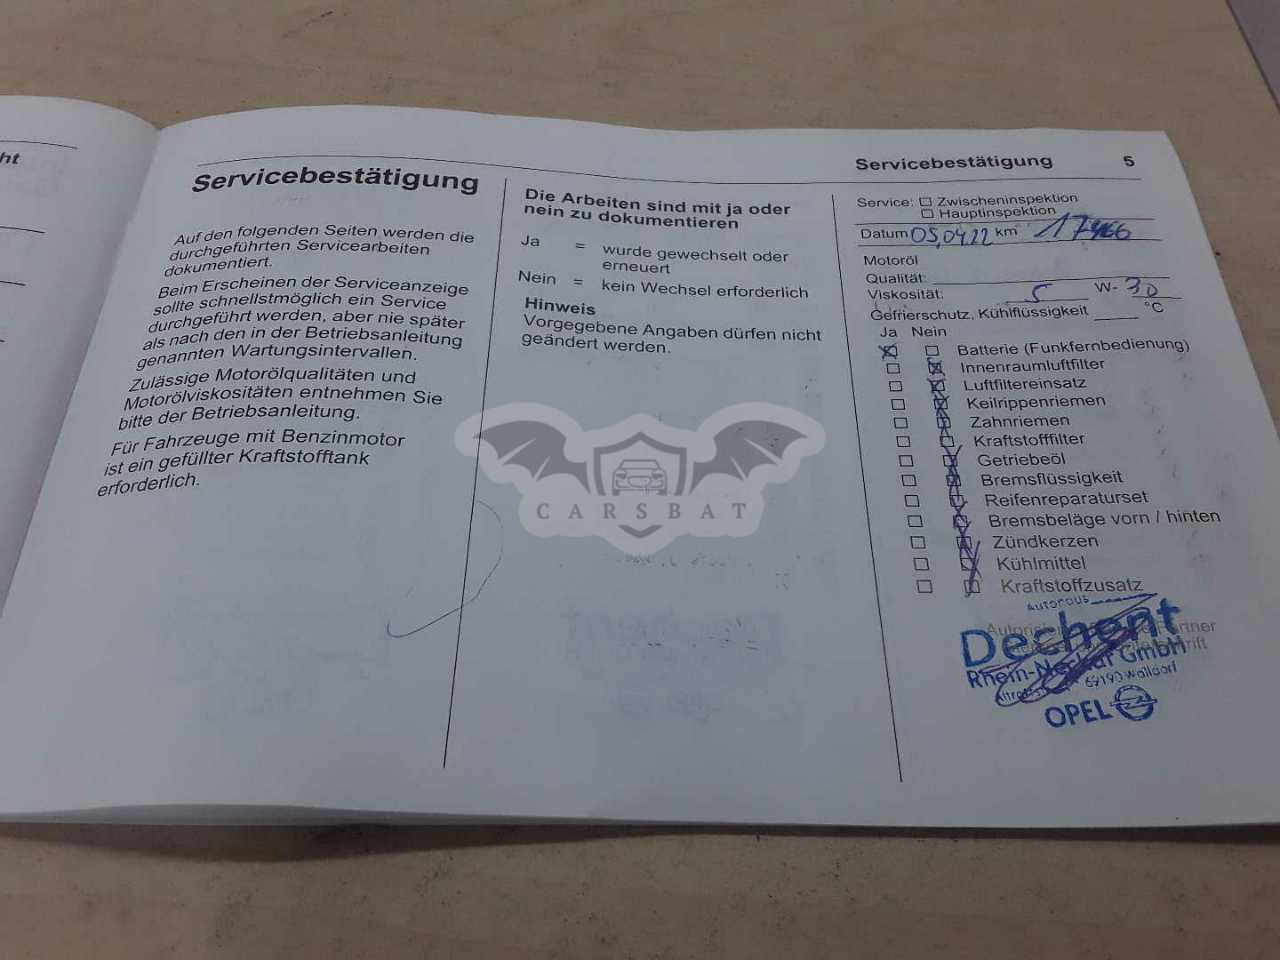 ht
Servicebestätigung
Auf den folgenden Seiten werden die
durchgeführten Servicearbeiten
dokumentiert.
Beim Erscheinen der Serviceanzeige
sollte schnellstmöglich ein Service
durchgeführt werden, aber nie später
als nach den in der Betriebsanleitung
genannten Wartungsintervallen.
Zulässige Motorölqualitäten und
Motorölviskositäten entnehmen Sie
bitte der Betriebsanleitung.
Für Fahrzeuge mit Benzinmotor
ist ein gefüllter Kraftstofftank
erforderlich.
Die Arbeiten sind mit ja oder
nein zu dokumentieren
Ja = wurde gewechselt oder
erneuert
Nein = kein Wechsel erforderlich
Hinweis
Vorgegebene Angaben dürfen nicht
geändert werden.
CARSBAT
Servicebestätigung 5
Service: Zwischeninspektion
Hauptinspektion
Datum 05,04,22 km 17466
Motoröl
Qualität:
Viskosität: 5 W- 30
Gefrierschutz, Kühlflüssigkeit °C
Ja Nein
Batterie (Funkfernbedienung)
Innenraumluftfilter
Luftfiltereinsatz
Keilrippenriemen
Zahnriemen
Kraftstofffilter
Getriebeöl
Bremsflüssigkeit
Reifenreparaturset
Bremsbeläge vorn / hinten
Zündkerzen
Kühlmittel
Kraftstoffzusatz
Autohaus
Dechent
Rhein-Neckar GmbH
69190 Walldorf
OPEL